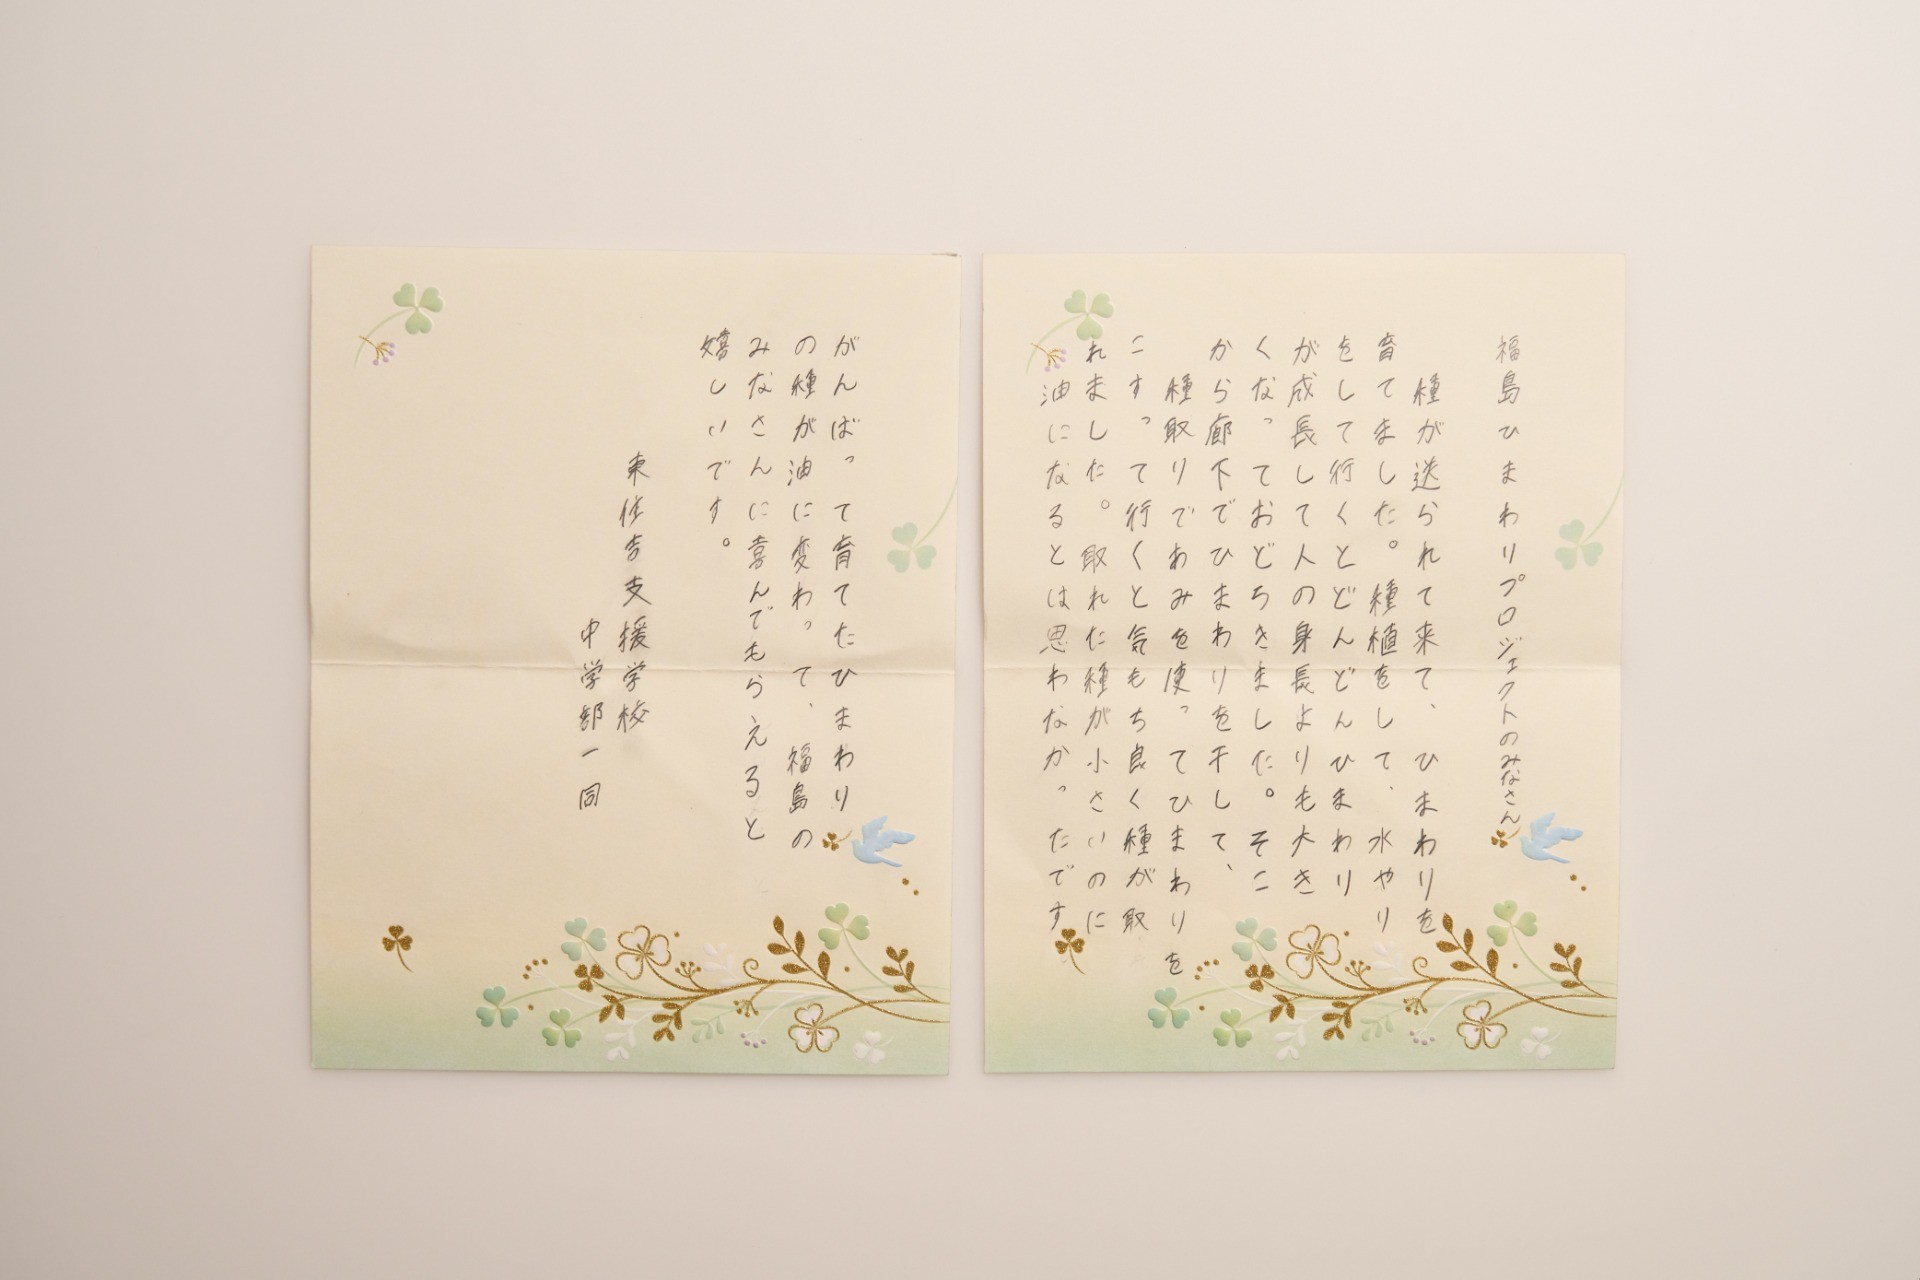 福島ひまわりプロジェクトのみなさん
種が送られて来て、ひまわりを
育てました。種植をして、水やり
をして行くとどんどんひまわり
が成長して人の身長よりも大き
くなっておどろきました。そこ
から廊下でひまわりを干して、
種取りであみを使ってひまわりを
こすって行くと気もち良く種が取
れました。取れた種が小さいのに
油になるとは思わなかったです
がんばって育てたひまわり
の種が油に変わって、福島の
みなさんに喜んでもらえると
嬉しいです。
東住吉支援学校
中学部一同